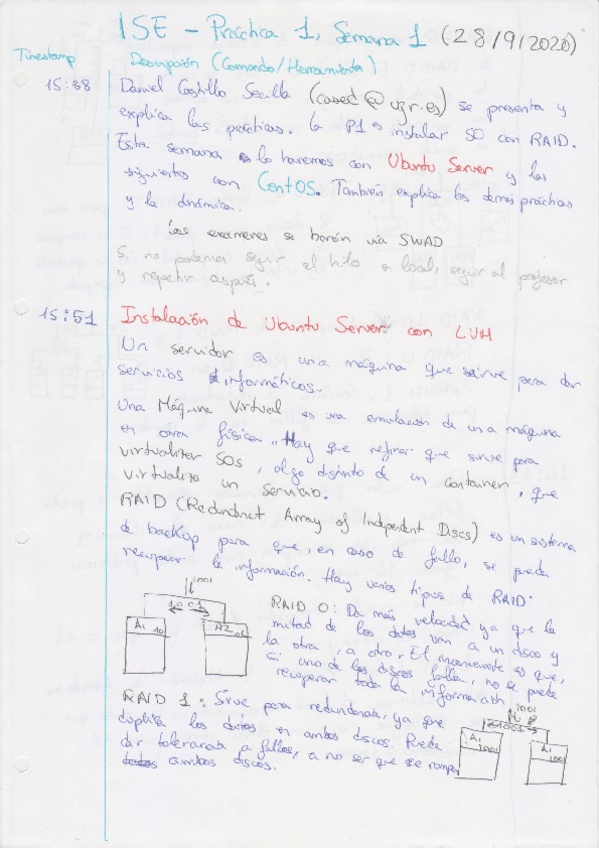 ISE - Práctica 1, Semana 1 (28/9/2020)
Timestamp
Descripción (Comando/Herramienta)
15:38
Daniel Castillo Secilla (cased@ugr.es) se presenta y
explica las prácticas. La P1 es instalar SO con RAID.
Esta semana lo haremos con Ubuntu Server y las
siguientes con CentOS. También explica las demás prácticas
y la dinámica.
Los exámenes se harán vía SWAD
Si no podemos seguir el hilo a local, seguir al profesor
y repetir después.
15:51
Instalación de Ubuntu Server con LVM
Un servidor es una máquina que sirve para dar
servicios informáticos.
Una Máquina Virtual es una emulación de una máquina
en otra física. Hay que refinar que sirve para
virtualizar SOs, algo distinto de un container, que
virtualiza un servicio.
RAID (Redundnct Array of Indepdent Discs) es un sistema
de backup para que, en caso de fallo, se pueda
recuperar la información. Hay varios tipos de RAID:
1001
1001
A1 10
A2 01
RAID 0: Da más velocidad ya que la
mitad de los datos van a un disco y
la otra, a otro. El inconveniente es que,
si uno de los discos falla, no se puede
recuperar toda la información
RAID 1: Sirve para redundancia, ya que
duplica los datos en ambos discos. Puede
dar tolerancia a fallos, a no ser que se rompan
ambos discos.
1001
1001
A1 1001
A1 1001